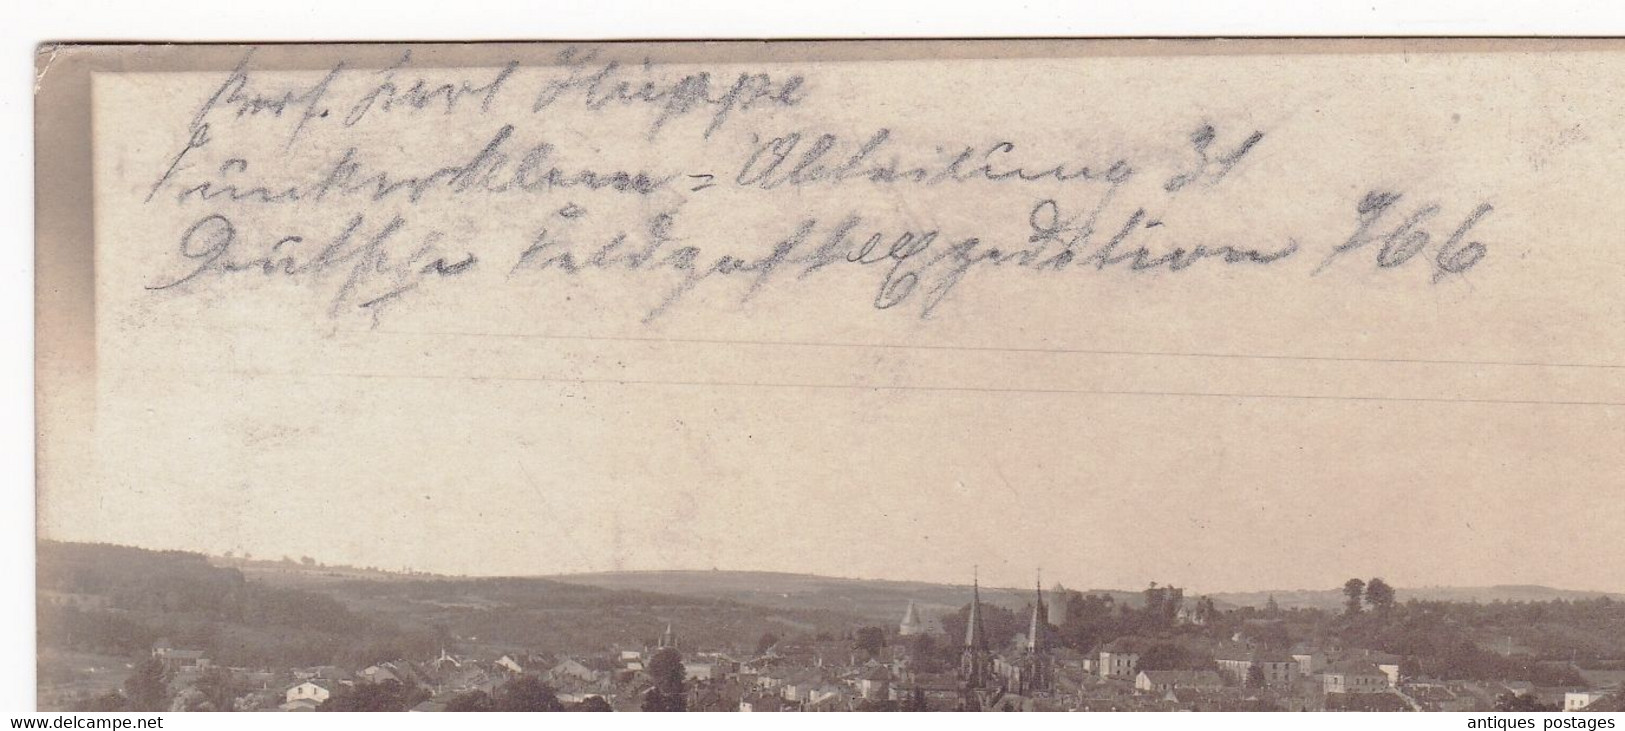 Karl Huppe
Funkerklein=Abteilung 31
Deutsche Feldpost Expedition 766
www.delcampe.net
antiques postages